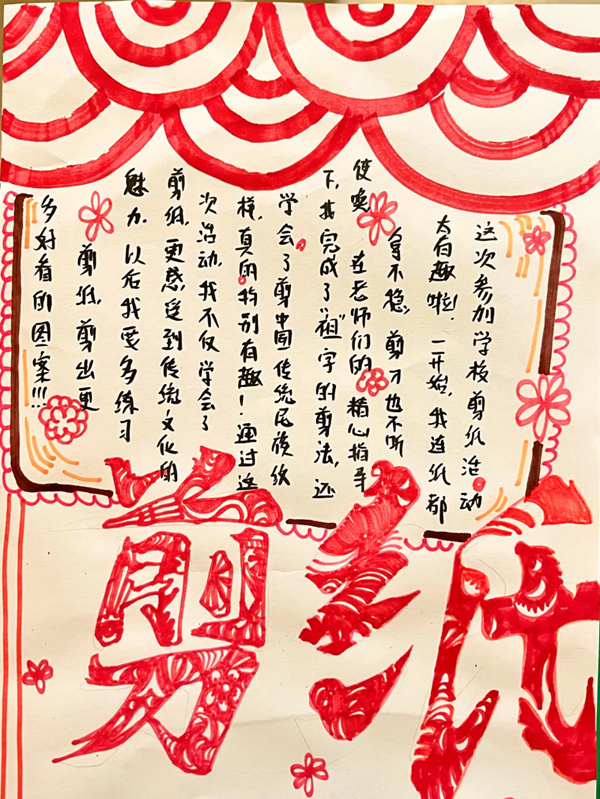 这次参加学校剪纸活动
太有趣啦!一开始,我连纸都
拿不稳,剪刀也不听
使唤 在老师们的精心指导
下,我完成了"祖"字的剪法,还
学会了剪中国传统民族纹
样,真的特别有趣!通过这
次活动,我不仅学会了
剪纸,更感受到传统文化的
魅力.以后我要多练习
剪纸,剪出更
多好看的图案!!!
剪纸